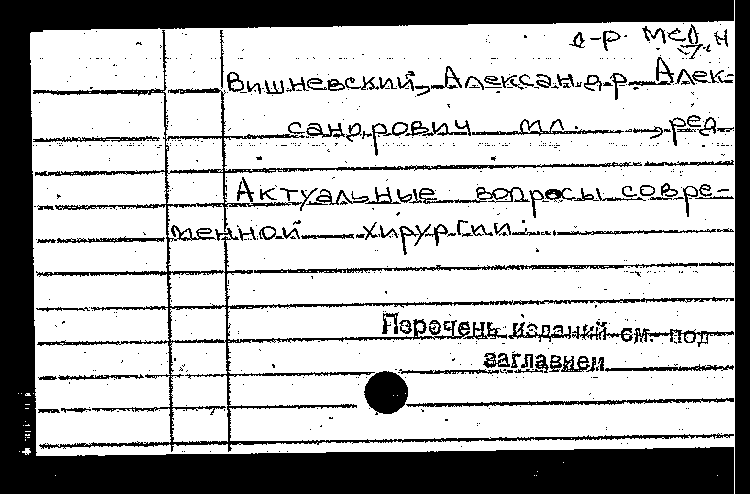 д-р. мед. н
Вишневский, Александр Алек-
сандрович мл. , ред
Актуальные вопросы совре-
менной хирургии:
Перечень изданий см. под
заглавием